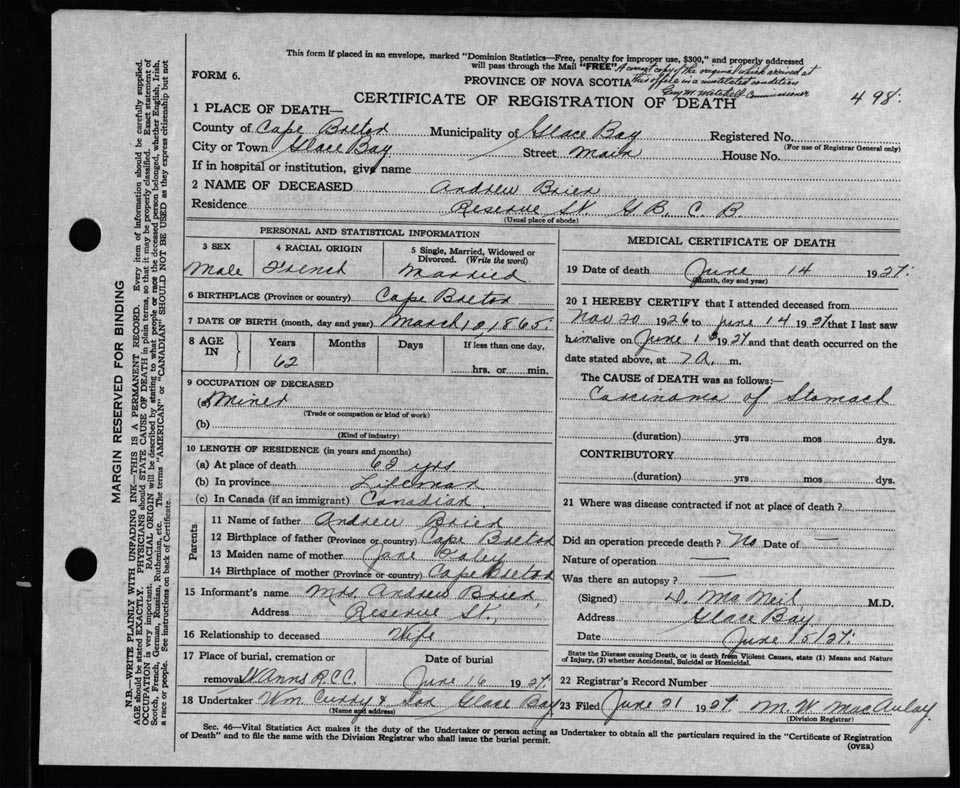 This form if placed in an envelope, marked "Dominion Statistics—Free, penalty for improper use, $300," and properly addressed
will pass through the Mail "FREE". A correct copy of the original which arrived at
FORM 6. PROVINCE OF NOVA SCOTIA this office in a mutilated condition
Guy M. Mitchell Commissioner
CERTIFICATE OF REGISTRATION OF DEATH 498.
1 PLACE OF DEATH—
County of Cape Breton Municipality of Glace Bay Registered No.
(For use of Registrar General only)
City or Town Glace Bay Street Main House No.
If in hospital or institution, give name
2 NAME OF DECEASED Andrew Brien
Residence Reserve St. G. B. C. B.
(Usual place of abode)
PERSONAL AND STATISTICAL INFORMATION
3 SEX 4 RACIAL ORIGIN 5 Single, Married, Widowed or Divorced. (Write the word)
Male French Married
6 BIRTHPLACE (Province or country) Cape Breton
7 DATE OF BIRTH (month, day and year) March 12, 1865.
8 AGE IN Years Months Days If less than one day,
62 hrs. or min.
9 OCCUPATION OF DECEASED
(a) Miner
(Trade or occupation or kind of work)
(b)
(Kind of industry)
10 LENGTH OF RESIDENCE (in years and months)
(a) At place of death 62 yrs
(b) In province Lifelong
(c) In Canada (if an immigrant) Canadian
Parents
11 Name of father Andrew Brien
12 Birthplace of father (Province or country) Cape Breton
13 Maiden name of mother Jane
14 Birthplace of mother (Province or country) Cape Breton
15 Informant's name Mrs. Andrew Brien,
Address Reserve St.,
16 Relationship to deceased Wife
17 Place of burial, cremation or Date of burial
removal St Anns R.C.C. June 16 1927.
18 Undertaker Wm Curry & Son Glace Bay
(Name and address)
MEDICAL CERTIFICATE OF DEATH
19 Date of death June 14 1927.
(Month, day and year)
20 I HEREBY CERTIFY that I attended deceased from
Nov 20 1926 to June 14 1927 that I last saw
him alive on June 1927 and that death occurred on the
date stated above, at 7 A. m.
The CAUSE of DEATH was as follows:—
Carcinoma of Stomach
(duration) yrs mos dys.
CONTRIBUTORY
(duration) yrs mos dys.
21 Where was disease contracted if not at place of death?
Did an operation precede death? No Date of —
Nature of operation —
Was there an autopsy? —
(Signed) D. McNeil, M.D.
Address Glace Bay
Date June 15/27.
State the Disease causing Death, or in death from Violent Causes, state (1) Means and Nature
of Injury, (2) whether Accidental, Suicidal or Homicidal.
22 Registrar's Record Number
23 Filed June 21 1927 M. W. MacAulay.
(Division Registrar)
Sec. 46—Vital Statistics Act makes it the duty of the Undertaker or person acting as Undertaker to obtain all the particulars required in the "Certificate of Registration
of Death" and to file the same with the Division Registrar who shall issue the burial permit.
(OVER)
MARGIN RESERVED FOR BINDING
N.B.—WRITE PLAINLY WITH UNFADING INK—THIS IS A PERMANENT RECORD. Every item of information should be carefully supplied.
AGE should be stated EXACTLY. PHYSICIANS should STATE CAUSE OF DEATH in plain terms, so that it may be properly classified. Exact statement of
OCCUPATION is very important. RACIAL ORIGIN will be described by stating to what people or race the deceased person belonged, whether English, Irish,
Scotch, French, German, Russian, Ruthenian, etc. The terms "AMERICAN" or "CANADIAN" SHOULD NOT BE USED as they express citizenship but not
a race or people. See instructions on back of Certificate.